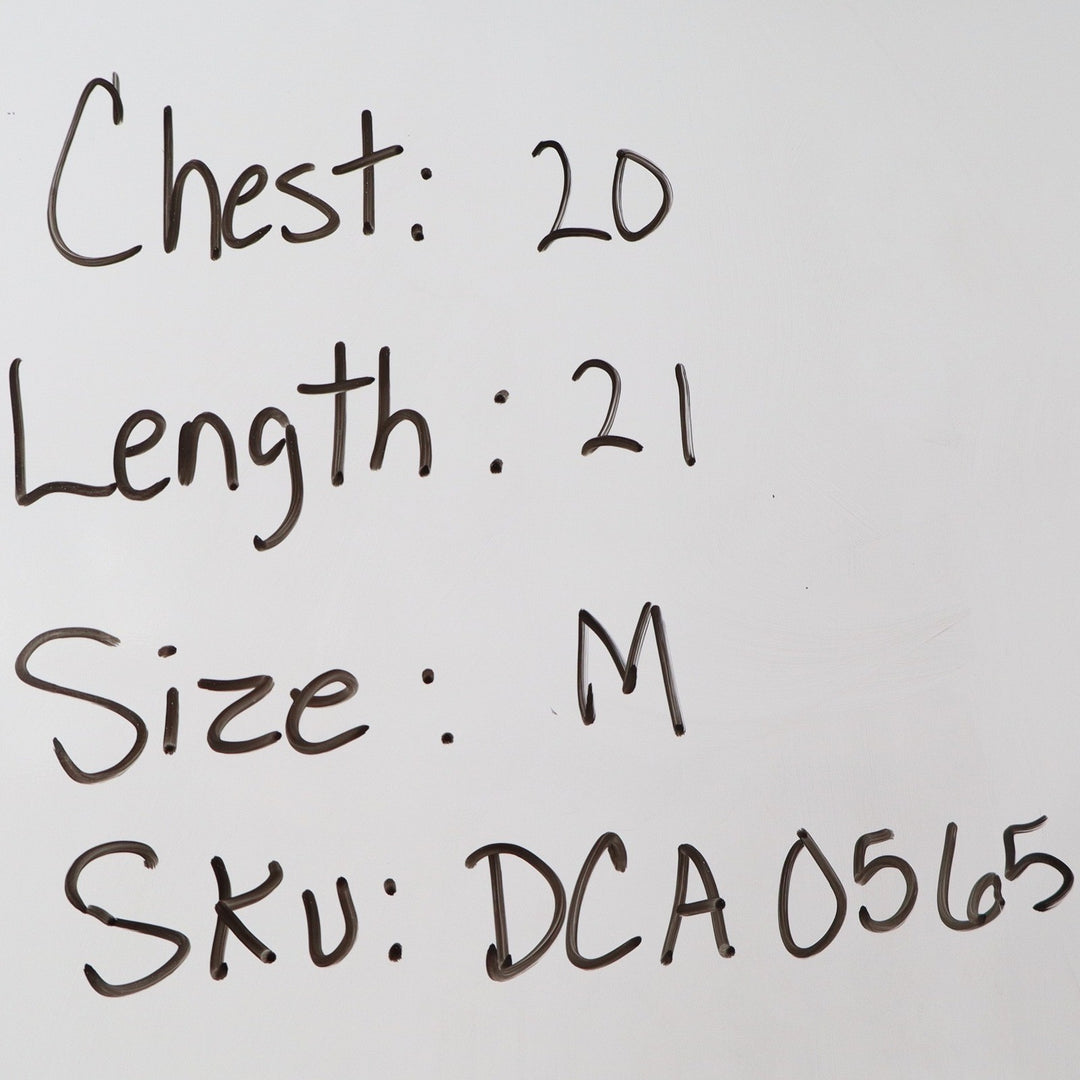 Chest: 20
Length: 21
Size: M
SKU: DCA 0565